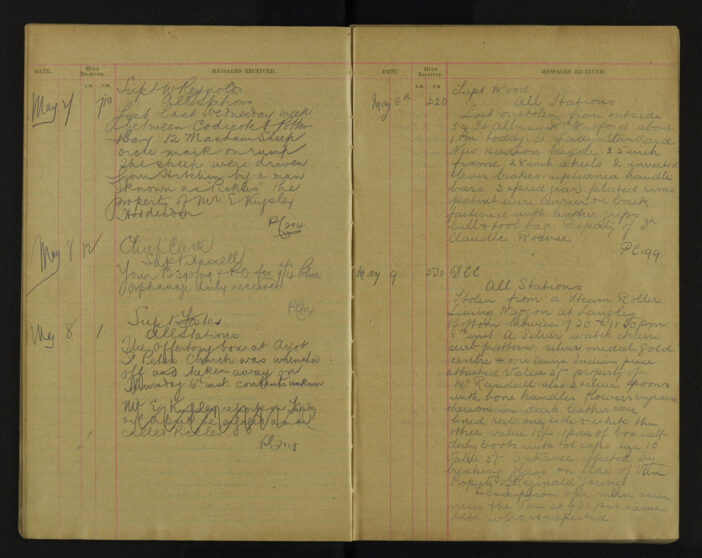 DATE. HOUR RECEIVED. MESSAGES RECEIVED.
A.M. P.M.
Supt W Reynolds
All Stations
May 7 7/10 Lost last Wednesday week
between Codicote & Potters
Bar 12 Masham Sheep
on rump
The sheep were driven
from Hitchin by a man
known as "Pickles" the
property of Mr E Kingsley
Hoddesdon
PC 214
May 8 12 Chief Clerk
Supt
Your B390/09 & PO for Police
Orphanage duly received
May 8 1 Supt
All Stations
The Offertory box at Ayot
St Peters Church was wrenched
off and taken away on
Thursday 6th inst. contents unknown
Mr E Kingsley
called Pickles
DATE. HOUR RECEIVED. MESSAGES RECEIVED.
A.M. P.M.
Supt Wood
May 8th 2 20 All Stations
Lost or stolen from outside
St Albans Rd Watford about
1 pm today a Lady's Standard
New Hudson bicycle 23 inch
frame 28 inch wheels 2 inverted
lever brakes upturned handle
bars 3 speed gear plated rims
patent wire carrier on back
fastened with leather grips
bell & tool bag. Property of
Claudie
PC 199
May 9 5 30 DCC
All Stations
Stolen from a Steam Roller
Living Waggon at Langley
Bottom between 7.30 & 11.30 pm
8th inst A Silver watch chain
curb pattern silver medal gold
centre & one piece
attached value 5/- property of
Mr Rundall also 2 silver spoons
with bone handles flowers engraved
thereon in dark leather case
lined red one side & white the
other value 10/- 1 pair of box calf
derby boots with toe caps size 10
value 5/- Entrance effected by
breaking glass on side of Van
Property of Reginald Young
Description of a man seen
near the Van at 9.30 pm same
date who is suspected